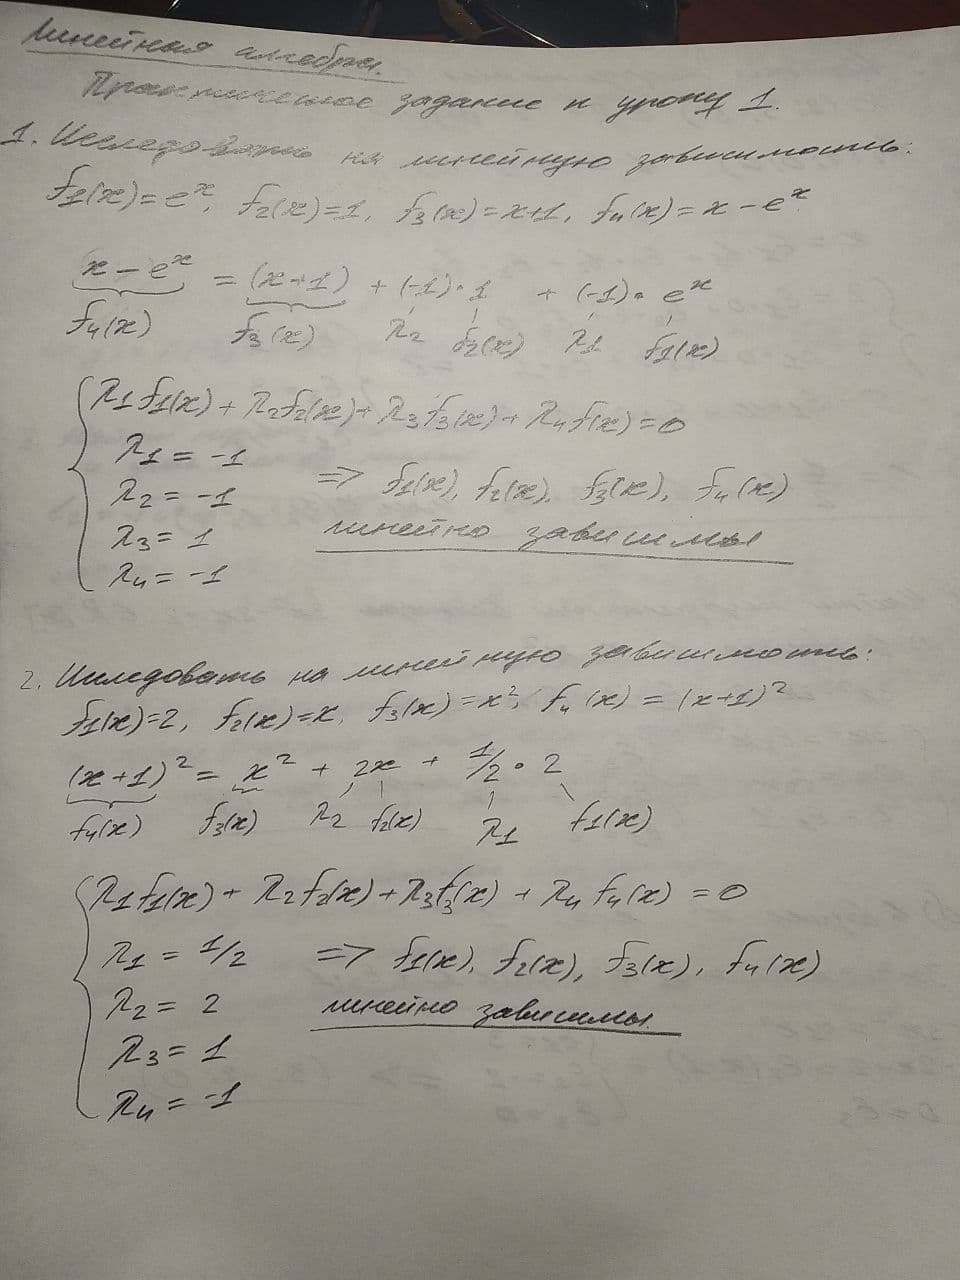 Линейная алгебра.
Практическое задание к уроку 1.
1. Исследовать на линейную зависимость:
f1(x)=e^x, f2(x)=1, f3(x)=x+1, f4(x)=x-e^x
x-e^x = (x+1) + (-1)·1 + (-1)·e^x
f4(x) f3(x) λ2 f2(x) λ1 f1(x)
λ1f1(x)+λ2f2(x)+λ3f3(x)+λ4f(x)=0
λ1=-1
λ2=-1 => f1(x), f2(x), f3(x), f4(x)
λ3=1 линейно зависимы
λ4=-1
2. Исследовать на линейную зависимость:
f1(x)=2, f2(x)=x, f3(x)=x², f4(x)=(x+1)²
(x+1)² = x² + 2x + 1/2·2
f4(x) f3(x) λ2 f2(x) λ1 f1(x)
λ1f1(x)+λ2f2(x)+λ3f3(x)+λ4f4(x)=0
λ1=1/2 => f1(x), f2(x), f3(x), f4(x)
λ2=2 линейно зависимы.
λ3=1
λ4=-1